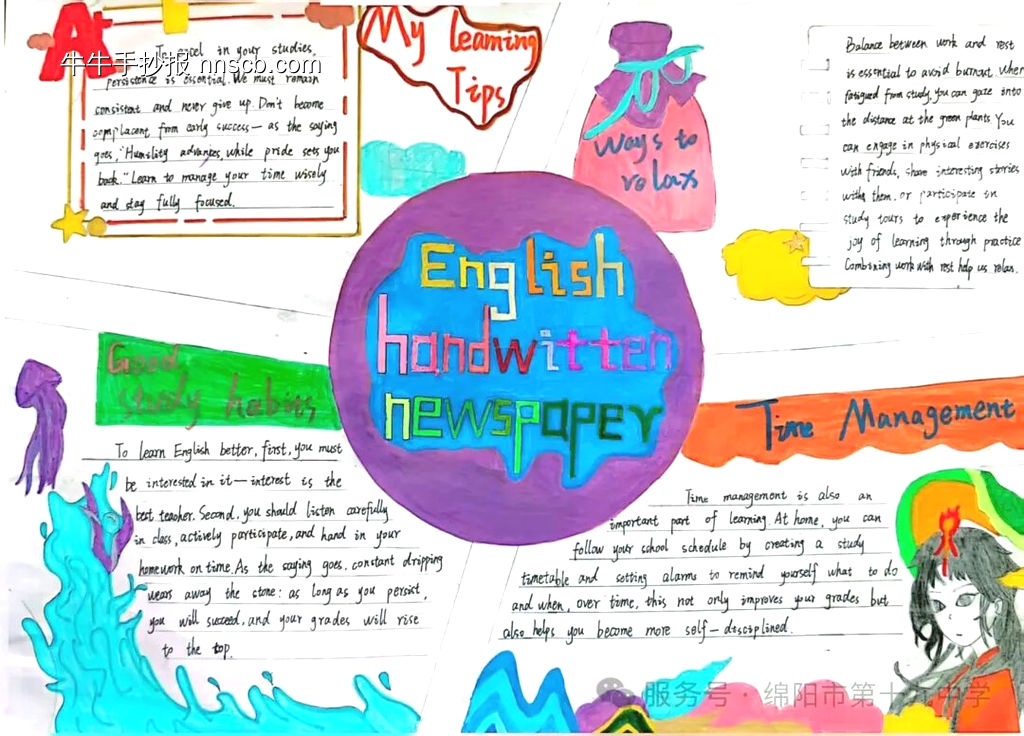 A+
牛牛手抄报 nnscb.com
To excel in your studies,
persistence is essential. We must remain
consistent and never give up. Don't become
complacent from early success — as the saying
goes, "Humility advances, while pride sets you
back." Learn to manage your time wisely
and stay fully focused.
My learning
Tips
Ways to
relax
Balance between work and rest
is essential to avoid burnout. When
fatigued from study, you can gaze into
the distance at the green plants You
can engage in physical exercises
with friends, share interesting stories
with them, or participate in
study tours to experience the
joy of learning through practice
Combining work with rest help us relax.
English
handwitten
newspaper
Good
study habits
To learn English better, first, you must
be interested in it — interest is the
best teacher. Second, you should listen carefully
in class, actively participate, and hand in your
homework on time. As the saying goes, constant dripping
wears away the stone: as long as you persist,
you will succeed, and your grades will rise
to the top.
Time Management
Time management is also an
important part of learning. At home, you can
follow your school schedule by creating a study
timetable and setting alarms to remind yourself what to do
and when, over time, this not only improves your grades but
also helps you become more self-disciplined.
服务号 · 绵阳市第十九中学